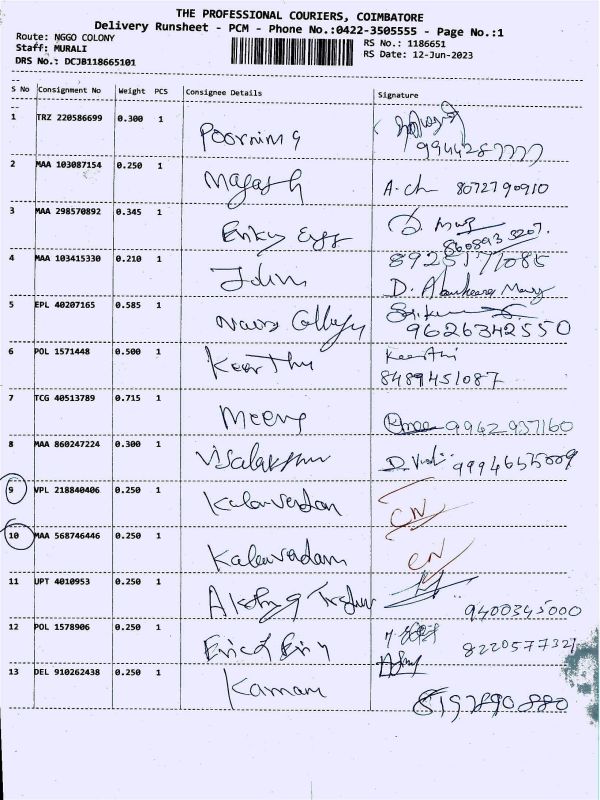 THE PROFESSIONAL COURIERS, COIMBATORE
Delivery Runsheet - PCM - Phone No.:0422-3505555 - Page No.:1
Route: NGGO COLONY
Staff: MURALI
DRS No.: DCJB118665101
RS No.: 1186651
RS Date: 12-Jun-2023
S No Consignment No Weight PCS Consignee Details Signature
1 TRZ 220586699 0.300 1 Poornima
2 MAA 103087154 0.250 1 A. Ch 8072790910
3 MAA 298570892 0.345 1
4 MAA 103415330 0.210 1 John
5 EPL 40207165 0.585 1 9626342550
6 POL 1571448 0.500 1 Keerthi Keerthi
8489451087
7 TCG 40513789 0.715 1 Meena 9942937160
8 MAA 860247224 0.300 1
9 VPL 218840406 0.250 1 Kalaivardan CN
10 MAA 568746446 0.250 1 Kalaivadam CN
11 UPT 4010953 0.250 1 9400345000
12 POL 1578906 0.250 1 8220577327
13 DEL 910262438 0.250 1